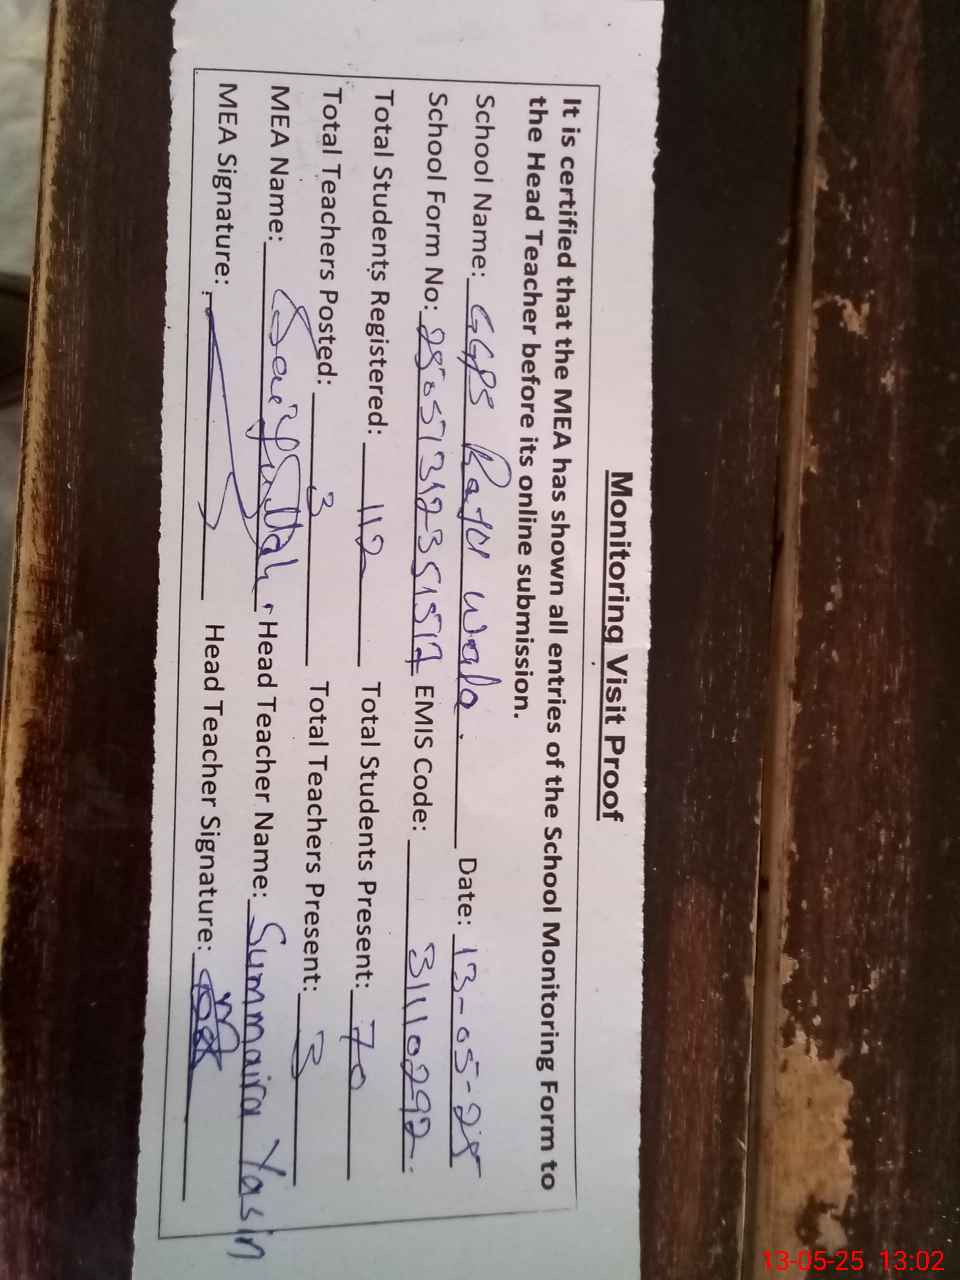 Monitoring Visit Proof
It is certified that the MEA has shown all entries of the School Monitoring Form to
the Head Teacher before its online submission.
School Name: GGPS Rata wala. Date: 13-05-25
School Form No: EMIS Code: 31110292
Total Students Registered: 112 Total Students Present: 70
Total Teachers Posted: 3 Total Teachers Present: 3
MEA Name: Head Teacher Name: Summaira Yasin
MEA Signature: Head Teacher Signature:
13-05-25 13:02